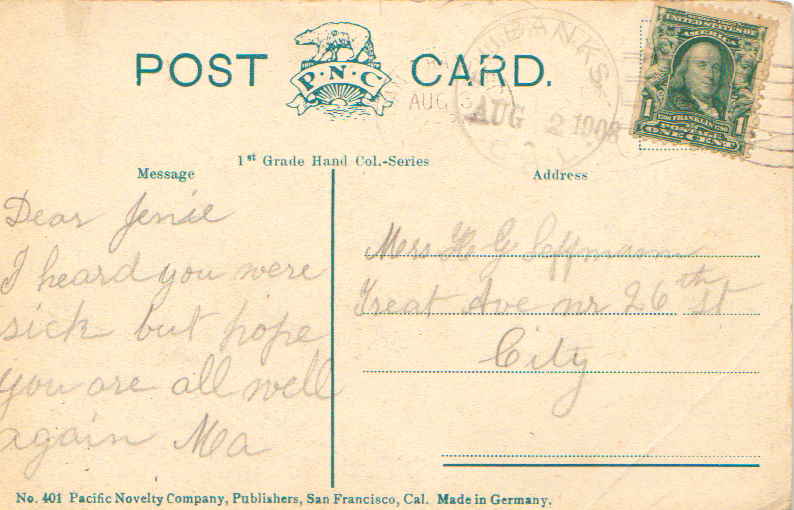 POST CARD.
P.N.C
AUG 3
BANKS
AUG 2 1908
CAL.
UNITED STATES OF AMERICA
1 FRANKLIN 1
POSTAGE
ONE CENT
1st Grade Hand Col.-Series
Message
Address
Dear Jenie
I heard you were
sick but hope
you are all well
again Ma
Mrs H G
Treat Ave nr 26th St
City
No. 401 Pacific Novelty Company, Publishers, San Francisco, Cal. Made in Germany.